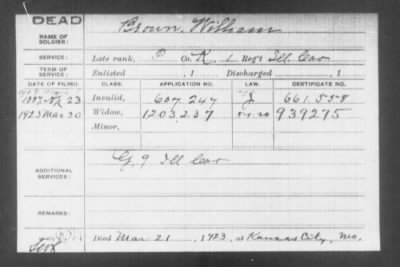 DEAD
NAME OF SOLDIER: Brown, William
SERVICE: Late rank, P Co. K, 1 Reg't Ill. Cav
TERM OF SERVICE: Enlisted , 1 Discharged , 1
DATE OF FILING. CLASS. APPLICATION NO. LAW. CERTIFICATE NO.
23 Invalid, 607.247 J 661.558
1923 Mar 30 Widow, 1203237 939275
Minor,
G. 9 Ill Cav
ADDITIONAL SERVICES:
REMARKS:
Died Mar 21, 1923, at Kansas City, Mo.